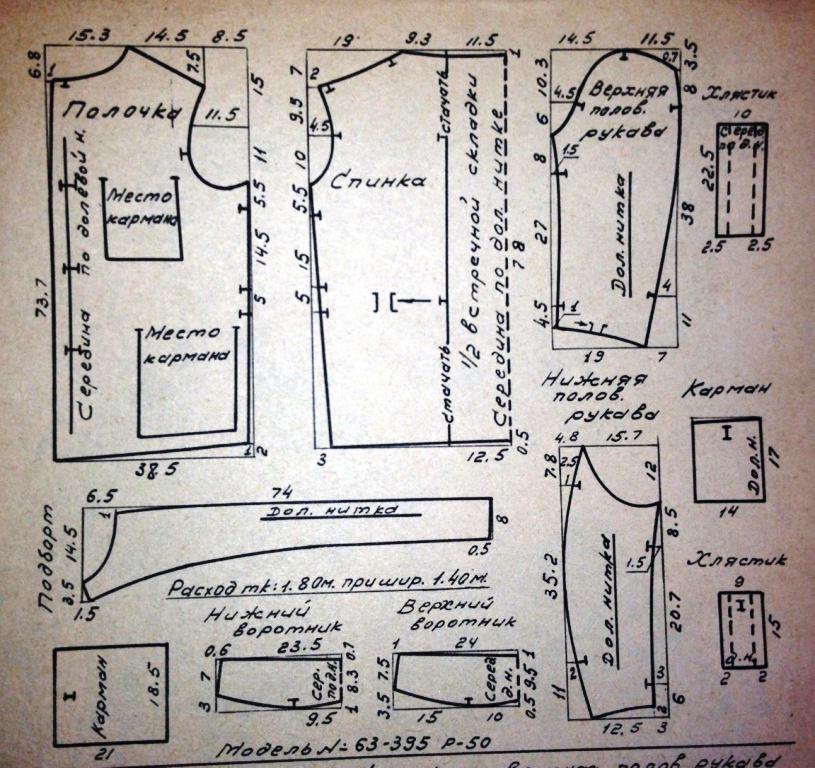 15.3 14.5 8.5
6.8
1
7.5
15
Полочка
11.5
11
5.5
Место
кармана
14.5
5
Место
кармана
Середина по долевой н.
73.7
1 2
38.5
19 9.3 11.5
1
7
2
9.5
4.5
10
5.5
15
5
Спинка
стачать
стачать
1/2 встречной складки
Середина по дол. нитке
78
0.5
3
12.5
14.5 11.5
10.3
0.7
3.5
4.5
8
6
Верхняя
полов.
рукава
1.5
8
27
Дол. нитка
38
4
4.5
1
11
19 7
Хлястик
10
Серед
по д.н.
22.5
2.5 2.5
Нижняя
полов.
рукава
4.8 15.7
7.8
2.5
1
12
8.5
1.5
35.2
Дол. нитка
20.7
2
11
3
6
2
12.5 3
Карман
Дол.н.
17
14
Хлястик
9
15
д.н.
2 2
Подборт
6.5 74
1
Дол. нитка
14.5
8
0.5
3.5
1.5
Расход тк: 1.80м. при шир. 1.40м.
Нижний
воротник
0.6 23.5 0.7
7
Сер.
по д.н.
8.3
3
9.5 1
Верхний
воротник
1 24 1
7.5
Серед
д.н.
9.5
3.5
0.5
15 10
Карман
18.5
21
Модель №: 63-395 р-50
полов. рукава